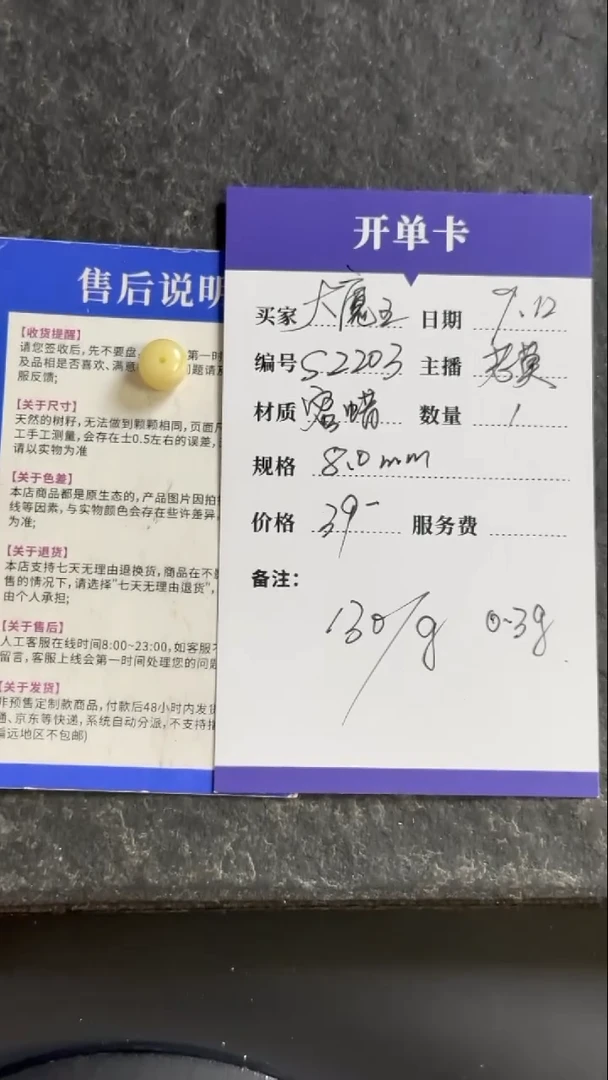 售后说明
【收货提醒】
请您签收后,先不要盘 第一时
及品相是否喜欢、满意 问题请及
服反馈;
【关于尺寸】
天然的树籽,无法做到颗颗相同,页面尺
工手工测量,会存在士0.5左右的误差,
请以实物为准
【关于色差】
本店商品都是原生态的,产品图片因拍
线等因素,与实物颜色会存在些许差异,
为准;
【关于退货】
本店支持七天无理由退换货,商品在不影
售的情况下,请选择"七天无理由退货",
由个人承担;
【关于售后】
人工客服在线时间8:00~23:00,如客服不
留言,客服上线会第一时间处理您的问题
【关于发货】
非预售定制款商品,付款后48小时内发货
通、京东等快递,系统自动分派,不支持指
偏远地区不包邮)
开单卡
买家 大魔王 日期 9.12
编号 S2203 主播 老莫
材质 蜜蜡 数量 1
规格 8.0mm
价格 39- 服务费
备注:
130/g 0.3g